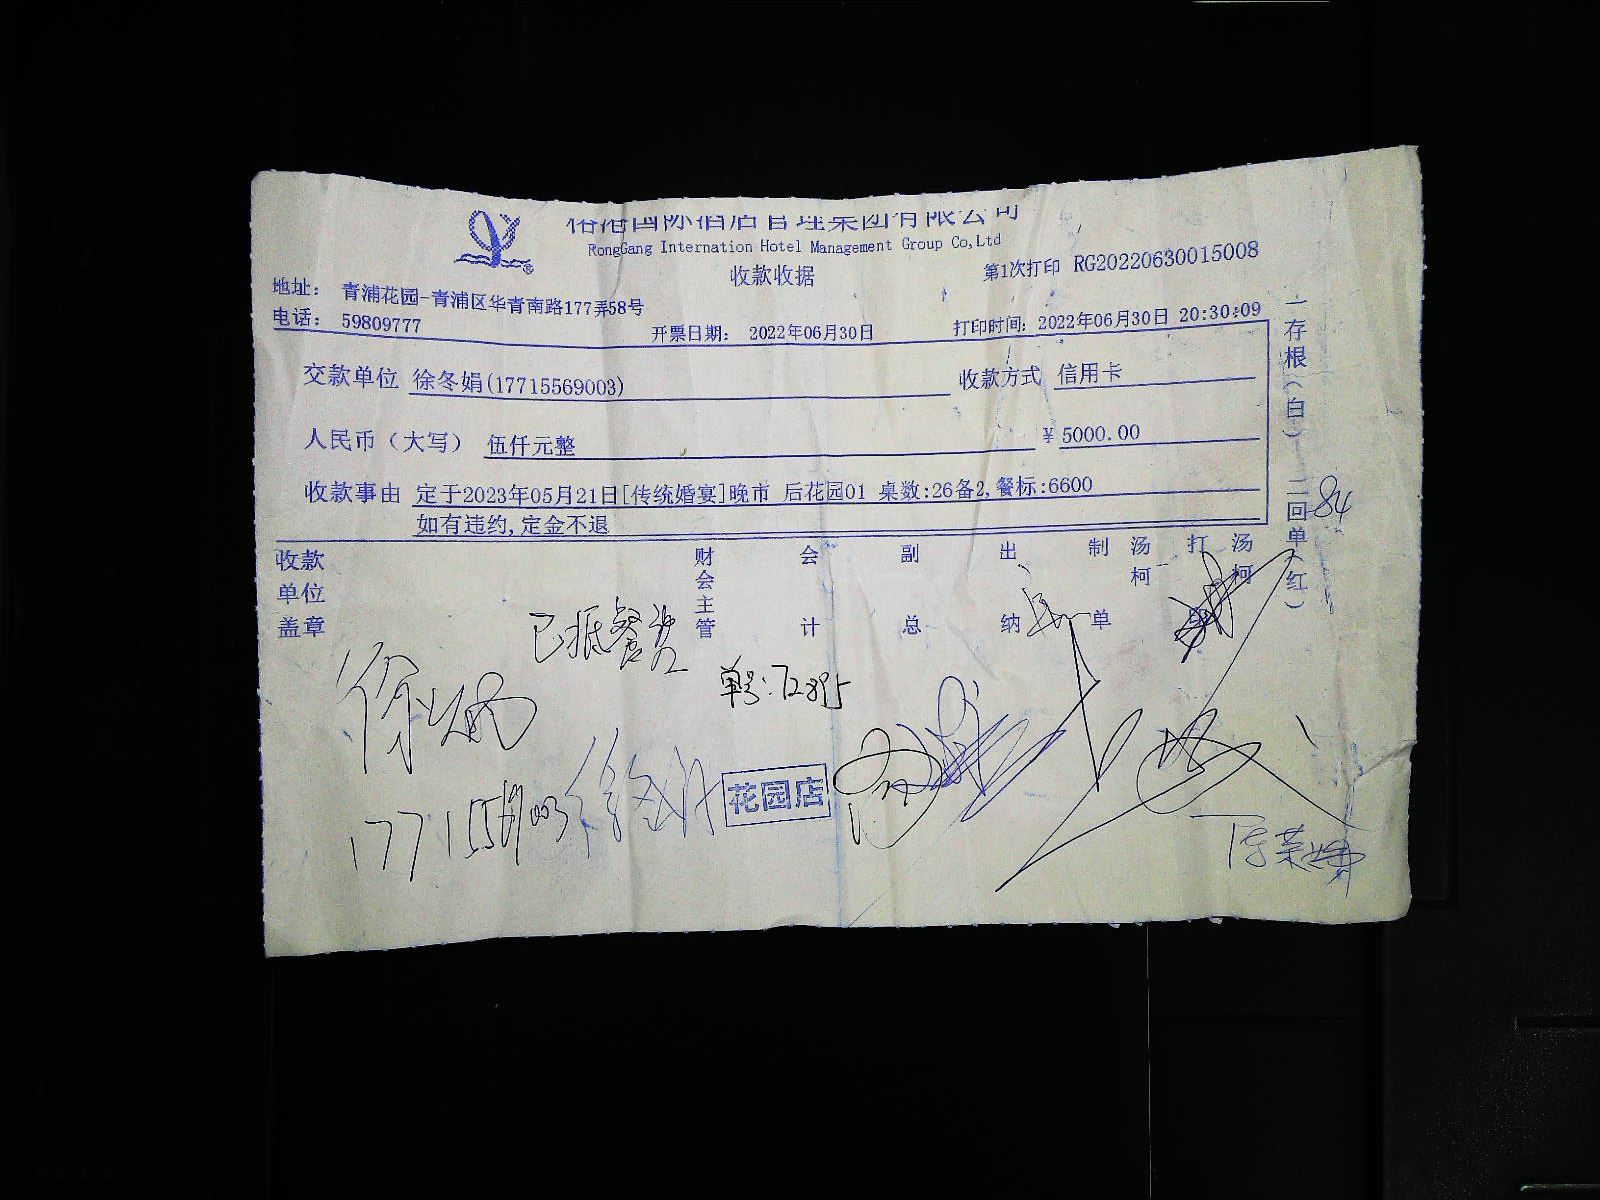 裕港国际酒店管理集团有限公司
RongGang Internation Hotel Management Group Co,Ltd
收款收据
第1次打印 RG20220630015008
地址： 青浦花园-青浦区华青南路177弄58号
电话： 59809777
开票日期： 2022年06月30日
打印时间： 2022年06月30日 20:30:09
交款单位 徐冬娟(17715569003)
收款方式 信用卡
人民币（大写） 伍仟元整
¥ 5000.00
收款事由 定于2023年05月21日[传统婚宴]晚市 后花园01 桌数:26备2,餐标:6600
如有违约,定金不退
一存根（白） 二回单（红）
84
收款单位盖章
财会主管
会计
副总
出纳
制单
汤柯
打
汤柯
已抵餐费
单号:
17715569003
花园店